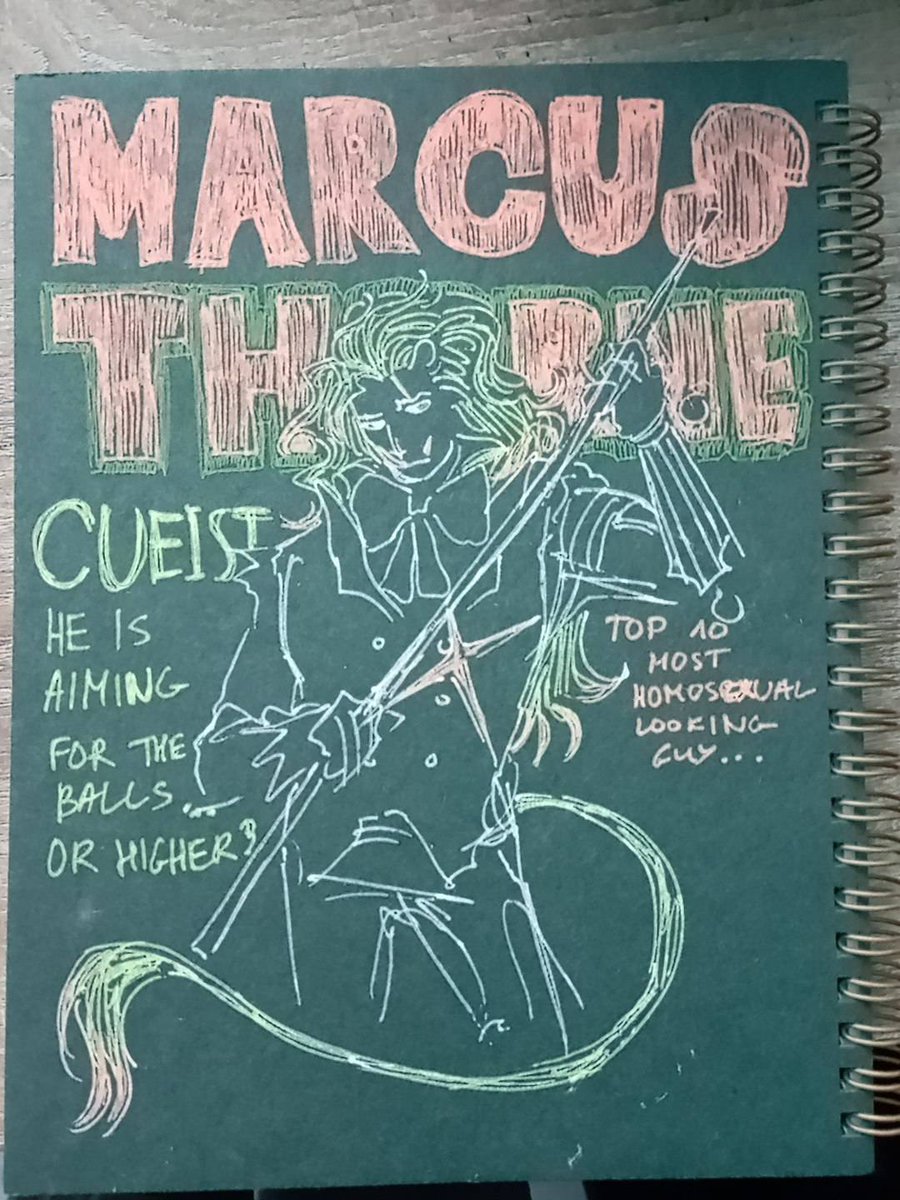 MARCUS
THORNE
CUEIST
HE IS
AIMING
FOR THE
BALLS...
OR HIGHER?
TOP 10
MOST
HOMOSEXUAL
LOOKING
GUY...